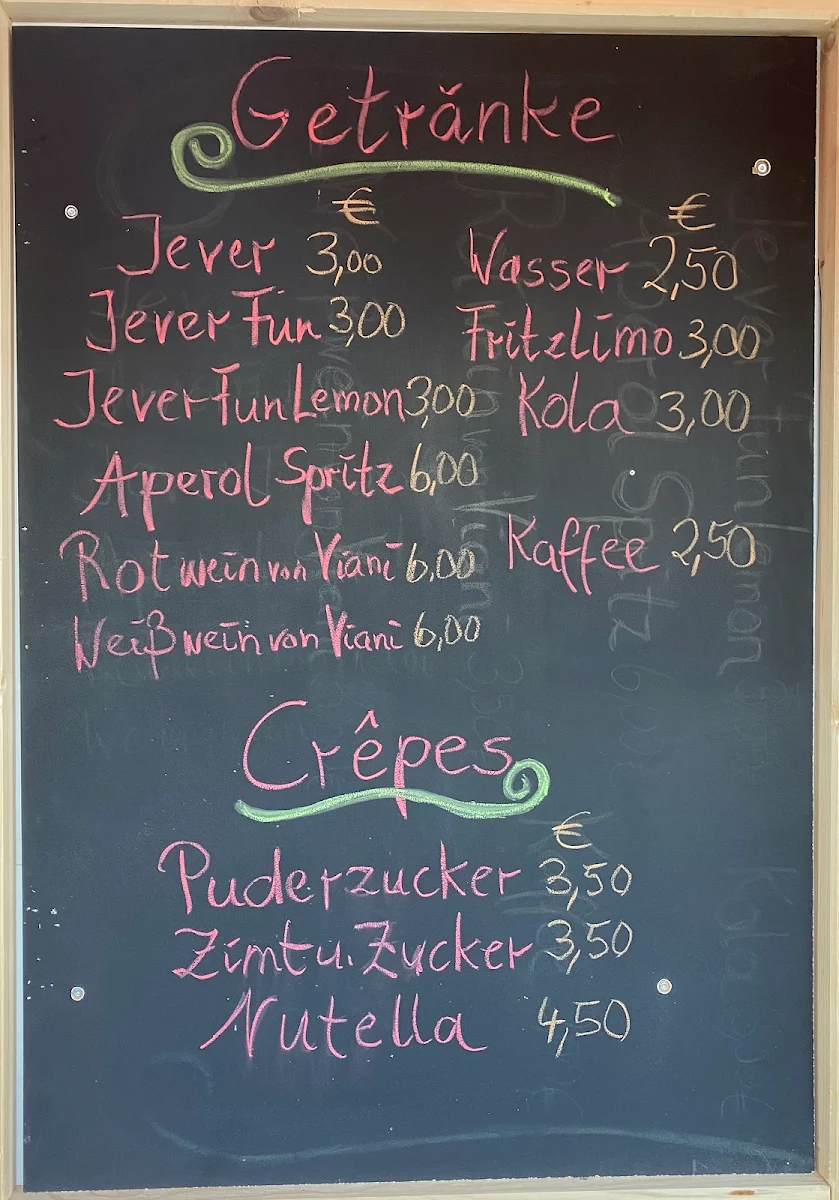 Getränke
€
Jever 3,00
Jever Fun 3,00
Jever Fun Lemon 3,00
Aperol Spritz 6,00
Rotwein von Viani 6,00
Weißwein von Viani 6,00
€
Wasser 2,50
Fritzlimo 3,00
Kola 3,00
Kaffee 2,50
Crêpes
€
Puderzucker 3,50
Zimt u. Zucker 3,50
Nutella 4,50